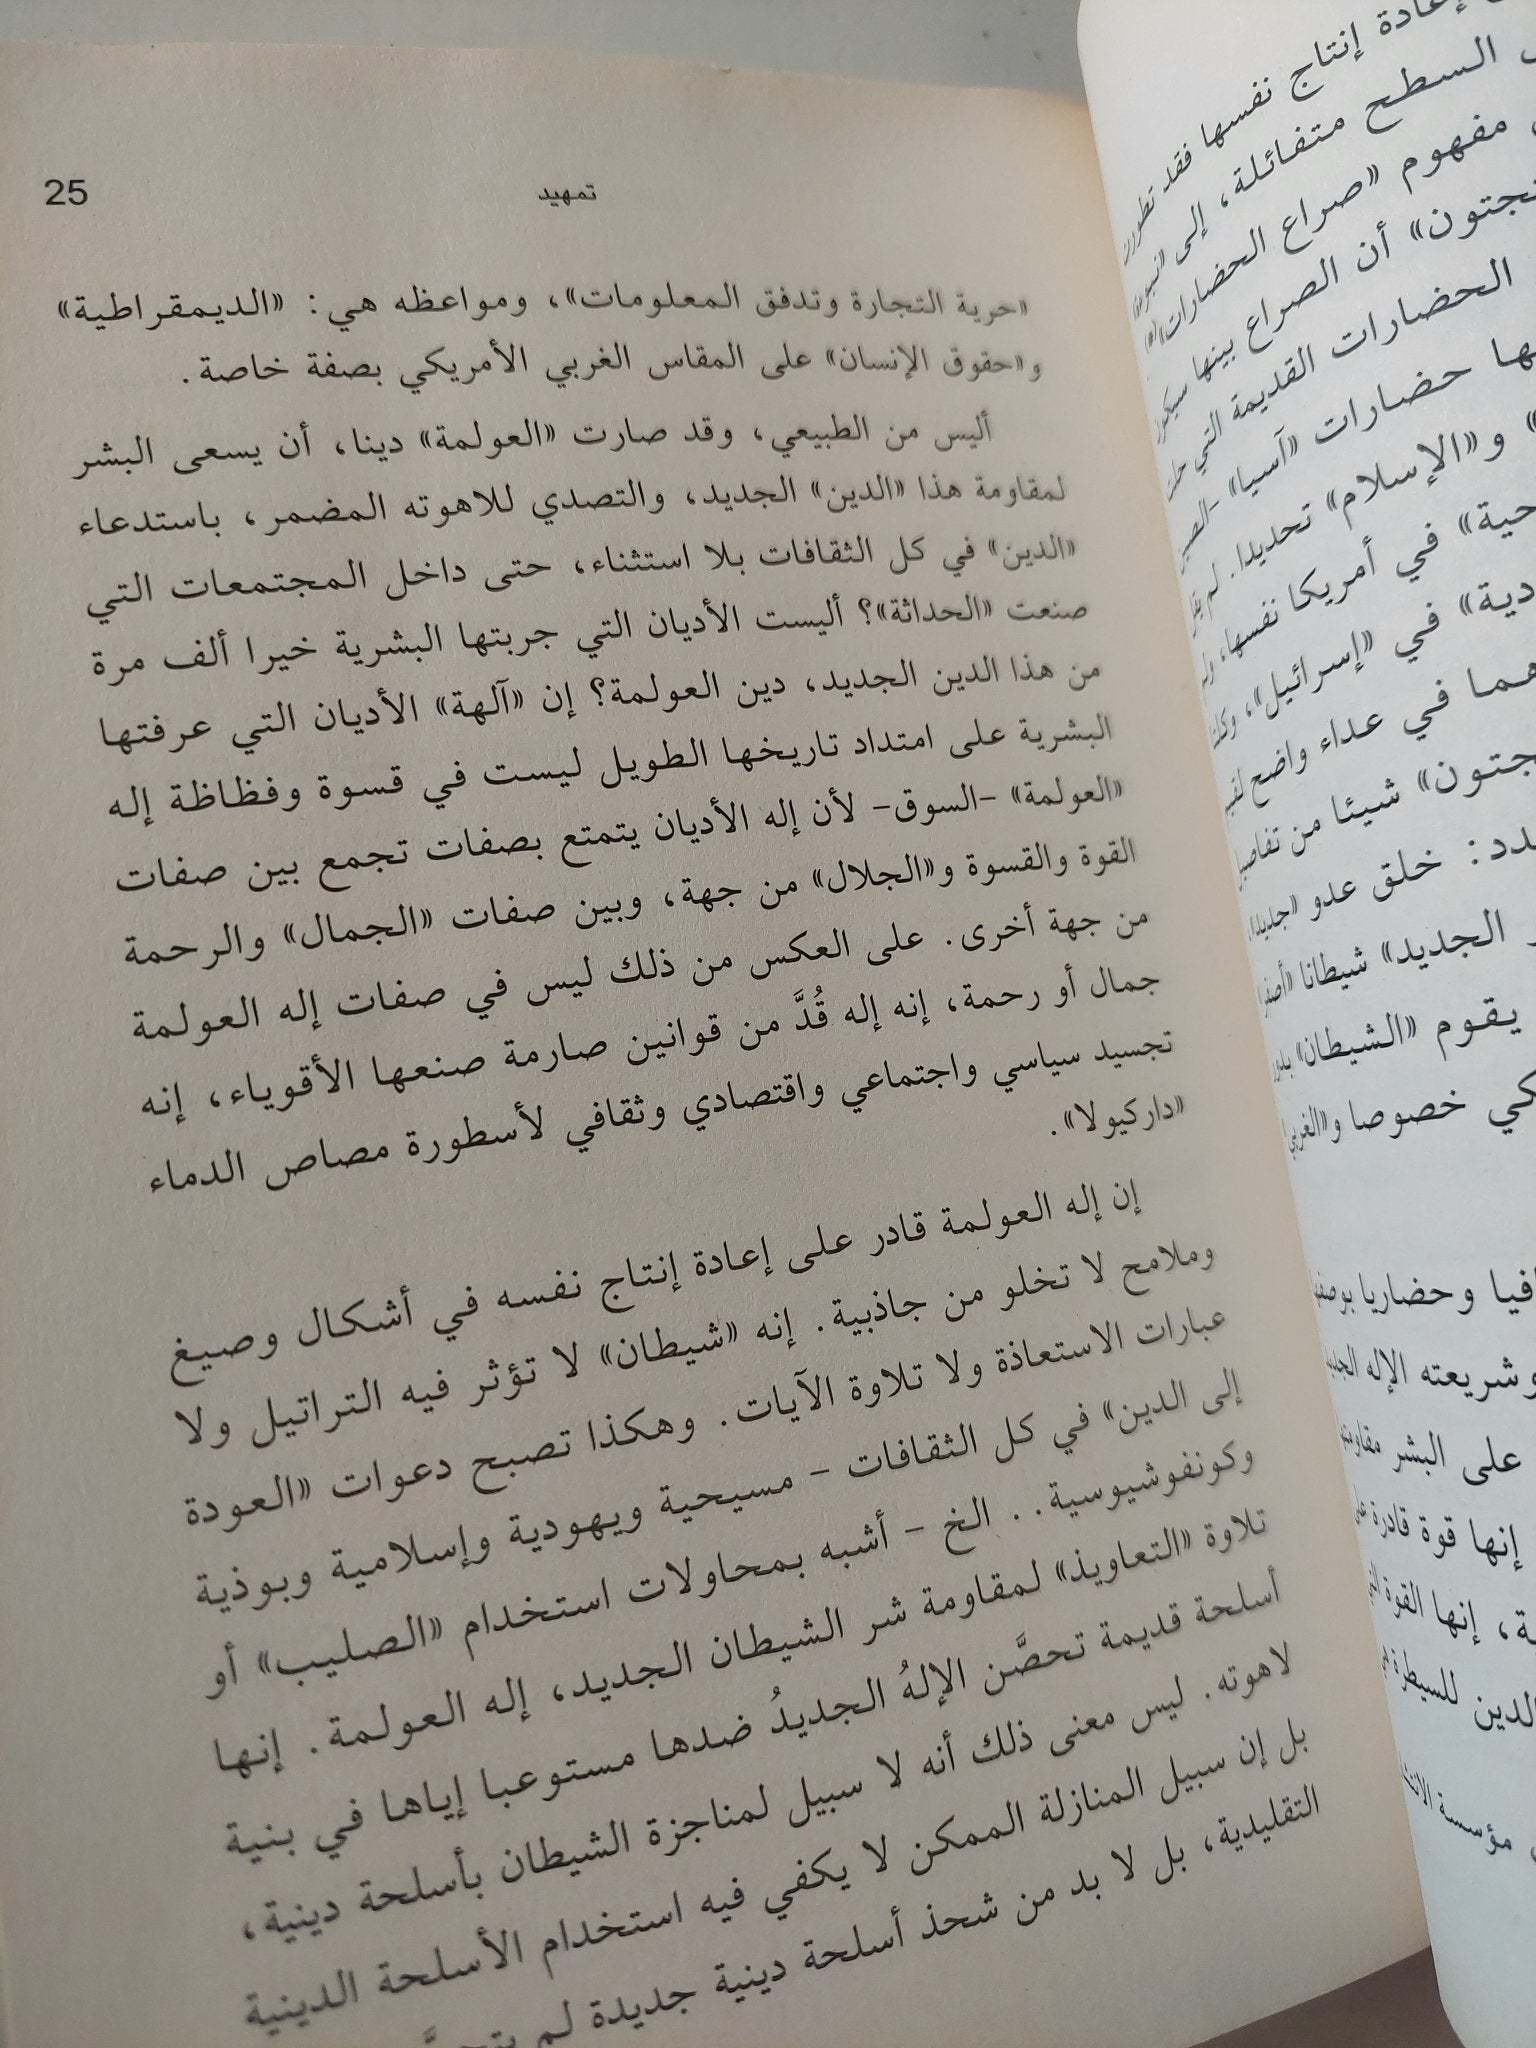 تمهيد
25
«حرية التجارة وتدفق المعلومات»، ومواعظه هي: «الديمقراطية»
و«حقوق الإنسان» على المقاس الغربي الأمريكي بصفة خاصة.
أليس من الطبيعي، وقد صارت «العولمة» دينا، أن يسعى البشر
لمقاومة هذا «الدين» الجديد، والتصدي للاهوته المضمر، باستدعاء
«الدين» في كل الثقافات بلا استثناء، حتى داخل المجتمعات التي
صنعت «الحداثة»؟ أليست الأديان التي جربتها البشرية خيرا ألف مرة
من هذا الدين الجديد، دين العولمة؟ إن «آلهة» الأديان التي عرفتها
البشرية على امتداد تاريخها الطويل ليست في قسوة وفظاظة إله
«العولمة» -السوق- لأن إله الأديان يتمتع بصفات تجمع بين صفات
القوة والقسوة و«الجلال» من جهة، وبين صفات «الجمال» والرحمة
من جهة أخرى. على العكس من ذلك ليس في صفات إله العولمة
جمال أو رحمة، إنه إله قُدَّ من قوانين صارمة صنعها الأقوياء، إنه
تجسيد سياسي واجتماعي واقتصادي وثقافي لأسطورة مصاص الدماء
«داركيولا».
إن إله العولمة قادر على إعادة إنتاج نفسه في أشكال وصيغ
وملامح لا تخلو من جاذبية. إنه «شيطان» لا تؤثر فيه التراتيل ولا
عبارات الاستعاذة ولا تلاوة الآيات. وهكذا تصبح دعوات «العودة
إلى الدين» في كل الثقافات - مسيحية ويهودية وإسلامية وبوذية
وكونفوشيوسية.. الخ - أشبه بمحاولات استخدام «الصليب» أو
تلاوة «التعاويذ» لمقاومة شر الشيطان الجديد، إله العولمة. إنها
أسلحة قديمة تحصَّن الإلهُ الجديدُ ضدها مستوعبا إياها في بنية
لاهوته. ليس معنى ذلك أنه لا سبيل لمناجزة الشيطان بأسلحة دينية،
بل إن سبيل المنازلة الممكن لا يكفي فيه استخدام الأسلحة الدينية
التقليدية، بل لا بد من شحذ أسلحة دينية جديدة لم
إعادة إنتاج نفسها فقد تطورت
السطح متفائلة، إلى
مفهوم «صراع الحضارات»
أن الصراع بينها سيكون
الحضارات القديمة التي
حضارات «آسيا»
و«الإسلام» تحديدا. لم
في أمريكا نفسها،
في «إسرائيل»،
في عداء واضح
شيئا من
خلق عدو «جديد»
الجديد» شيطانا
يقوم «الشيطان»
خصوصا و«الغربي
وحضاريا
وشريعته الإله
على البشر
إنها قوة قادرة
إنها القوة
الدين للسيطرة
مؤسسة